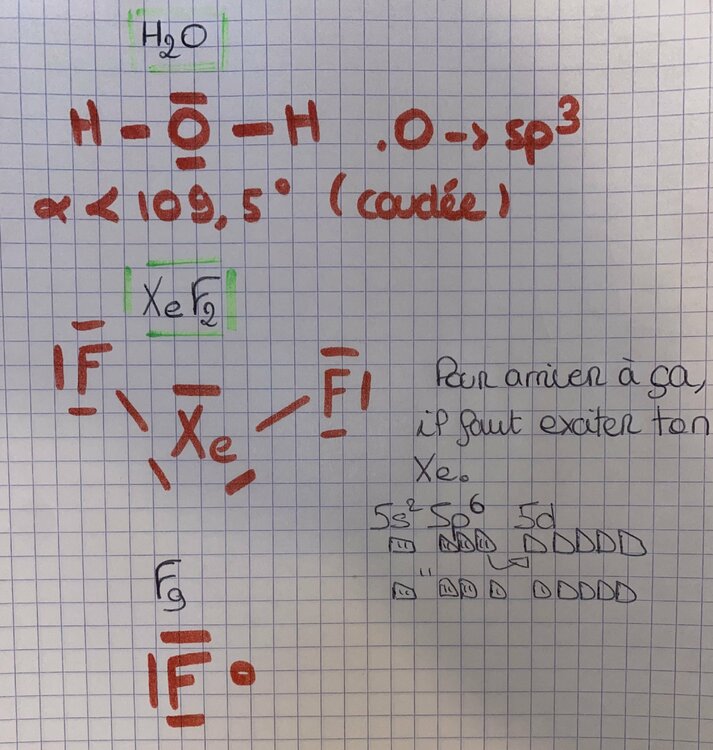 H₂O
H - O - H . O -> sp³
α < 109,5° (coudée)
XeF₂
F Xe F
Pour arriver à ça,
il faut exciter ton
Xe.
5s² 5p⁶ 5d
F₉
F •